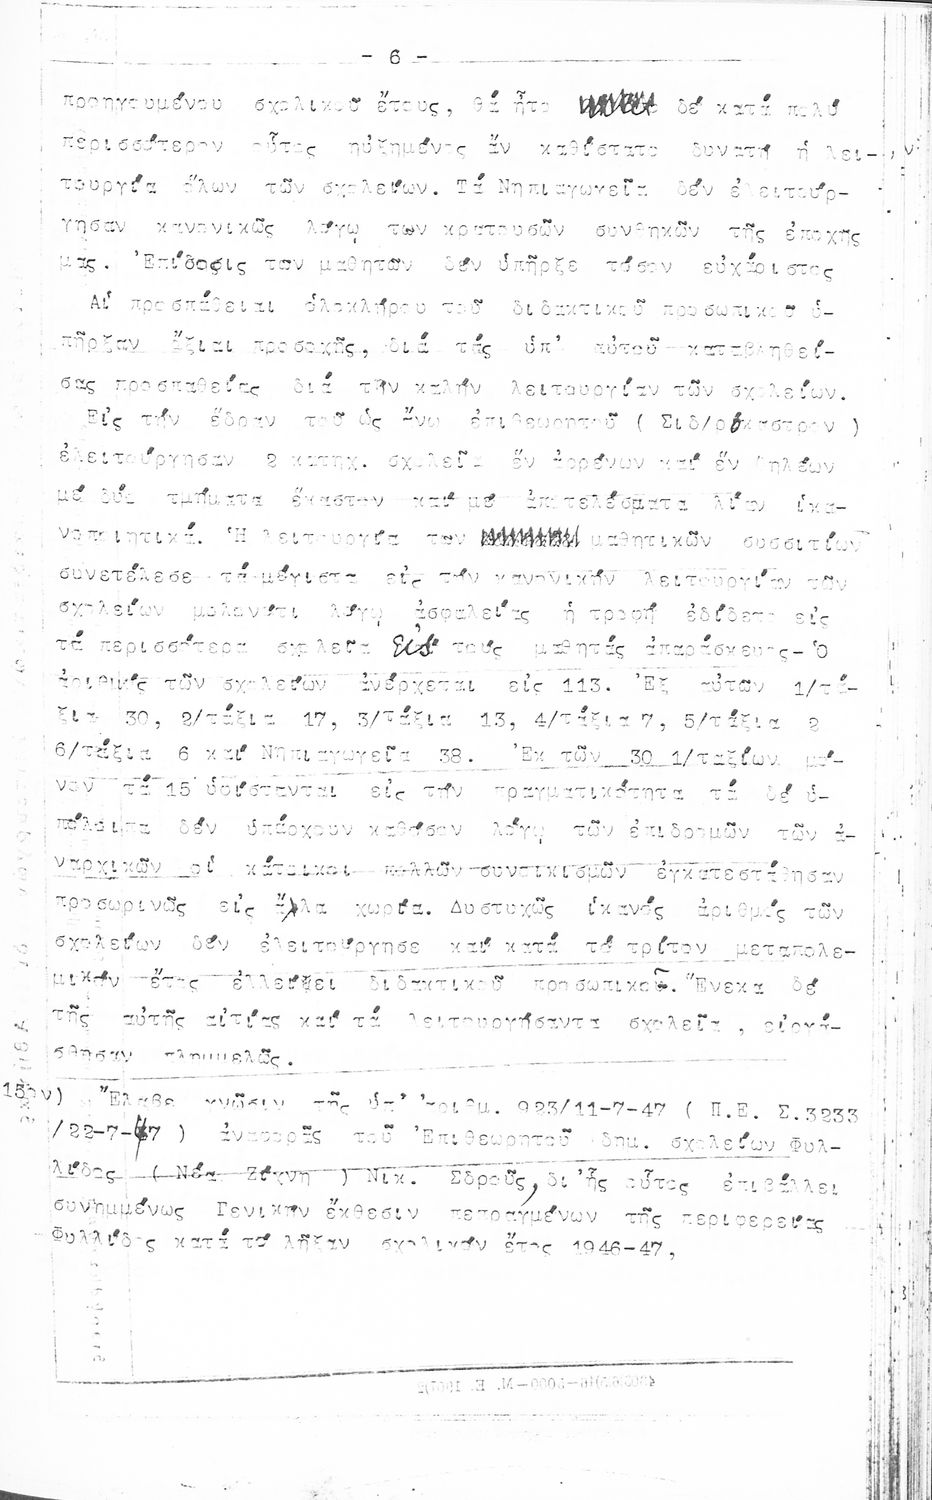 - 6 -
προηγουμένου σχολικοῦ ἔτους, θά ἦτο δέ κατά πολύ
περισσότερον οὗτος ηὐξημένος ἄν καθίστατο δυνατή ἡ λει-
τουργία ὅλων τῶν σχολείων. Τά Νηπιαγωγεῖα δέν ἐλειτούρ-
γησαν κανονικῶς λόγῳ των κρατουσῶν συνθηκῶν τῆς ἐποχῆς
μας. Ἐπίδοσις των μαθητῶν δέν ὑπῆρξε τόσον εὐχάριστος
Αἱ προσπάθειαι ὁλοκλήρου τοῦ διδακτικοῦ προσωπικοῦ ὑ-
πῆρξαν ἄξιαι προσοχῆς, διά τάς ὑπ' αὐτοῦ καταβληθεί-
σας προσπαθείας διά τήν καλήν λειτουργίαν τῶν σχολείων.
Εἰς τήν ἕδραν τοῦ ὡς ἄνω ἐπιθεωρητοῦ ( Σιδ/ρόκαστρον )
ἐλειτούργησαν 2 κατηχ. σχολεῖα ἕν ἀρρένων καί ἕν θηλέων
μέ δύο τμήματα ἕκαστον καί μέ ἀποτελέσματα λίαν ἱκα-
νοποιητικά. Ἡ λειτουργία των μαθητικῶν συσσιτίων
συνετέλεσε τά μέγιστα εἰς τήν κανονικήν λειτουργίαν τῶν
σχολείων μολονότι λόγῳ ἀσφαλείας ἡ τροφή ἐδίδετο εἰς
τά περισσότερα σχολεῖα εἰς τούς μαθητάς ἀπαράσκευος- Ὁ
ἀριθμός τῶν σχολείων ἀνέρχεται εἰς 113. Ἐξ αὐτῶν 1/τά-
ξια 30, 2/τάξια 17, 3/τάξια 13, 4/τάξια 7, 5/τάξια 2
6/τάξια 6 καί Νηπιαγωγεῖα 38. Ἐκ τῶν 30 1/ταξίων μό-
νον τά 15 ὑφίστανται εἰς τήν πραγματικότητα τά δέ ὑ-
πόλοιπα δέν ὑπάρχουν καθόσον λόγῳ τῶν ἐπιδρομῶν τῶν ἀ-
ναρχικῶν οἱ κάτοικοι πολλῶν συνοικισμῶν ἐγκατεστάθησαν
προσωρινῶς εἰς ἄλλα χωρία. Δυστυχῶς ἱκανός ἀριθμός τῶν
σχολείων δέν ἐλειτούργησε καί κατά τό τρίτον μεταπολε-
μικόν ἔτος ἐλλείψει διδακτικοῦ προσωπικοῦ. Ἕνεκα δέ
τῆς αὐτῆς αἰτίας καί τά λειτουργήσαντα σχολεῖα , εἰργά-
σθησαν πλημμελῶς.
15ον) Ἔλαβε γνῶσιν τῆς ὑπ' ἀριθμ. 923/11-7-47 ( Π.Ε. Σ.3233
/22-7-47 ) ἀναφορᾶς τοῦ Ἐπιθεωρητοῦ δημ. σχολείων Φυλ-
λίδος ( Νέα Ζίχνη ) Νικ. Σδροῦς, δι' ἧς οὗτος ἐπιβάλλει
συνημμένως Γενικήν ἔκθεσιν πεπραγμένων τῆς περιφερείας
Φυλλίδος κατά τό λῆξαν σχολικόν ἔτος 1946-47,